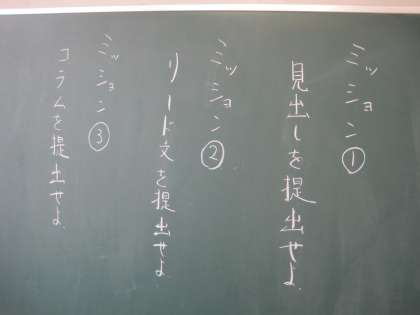 ミッション①
見出しを提出せよ.
ミッション②
リード文を提出せよ.
ミッション③
コラムを提出せよ.